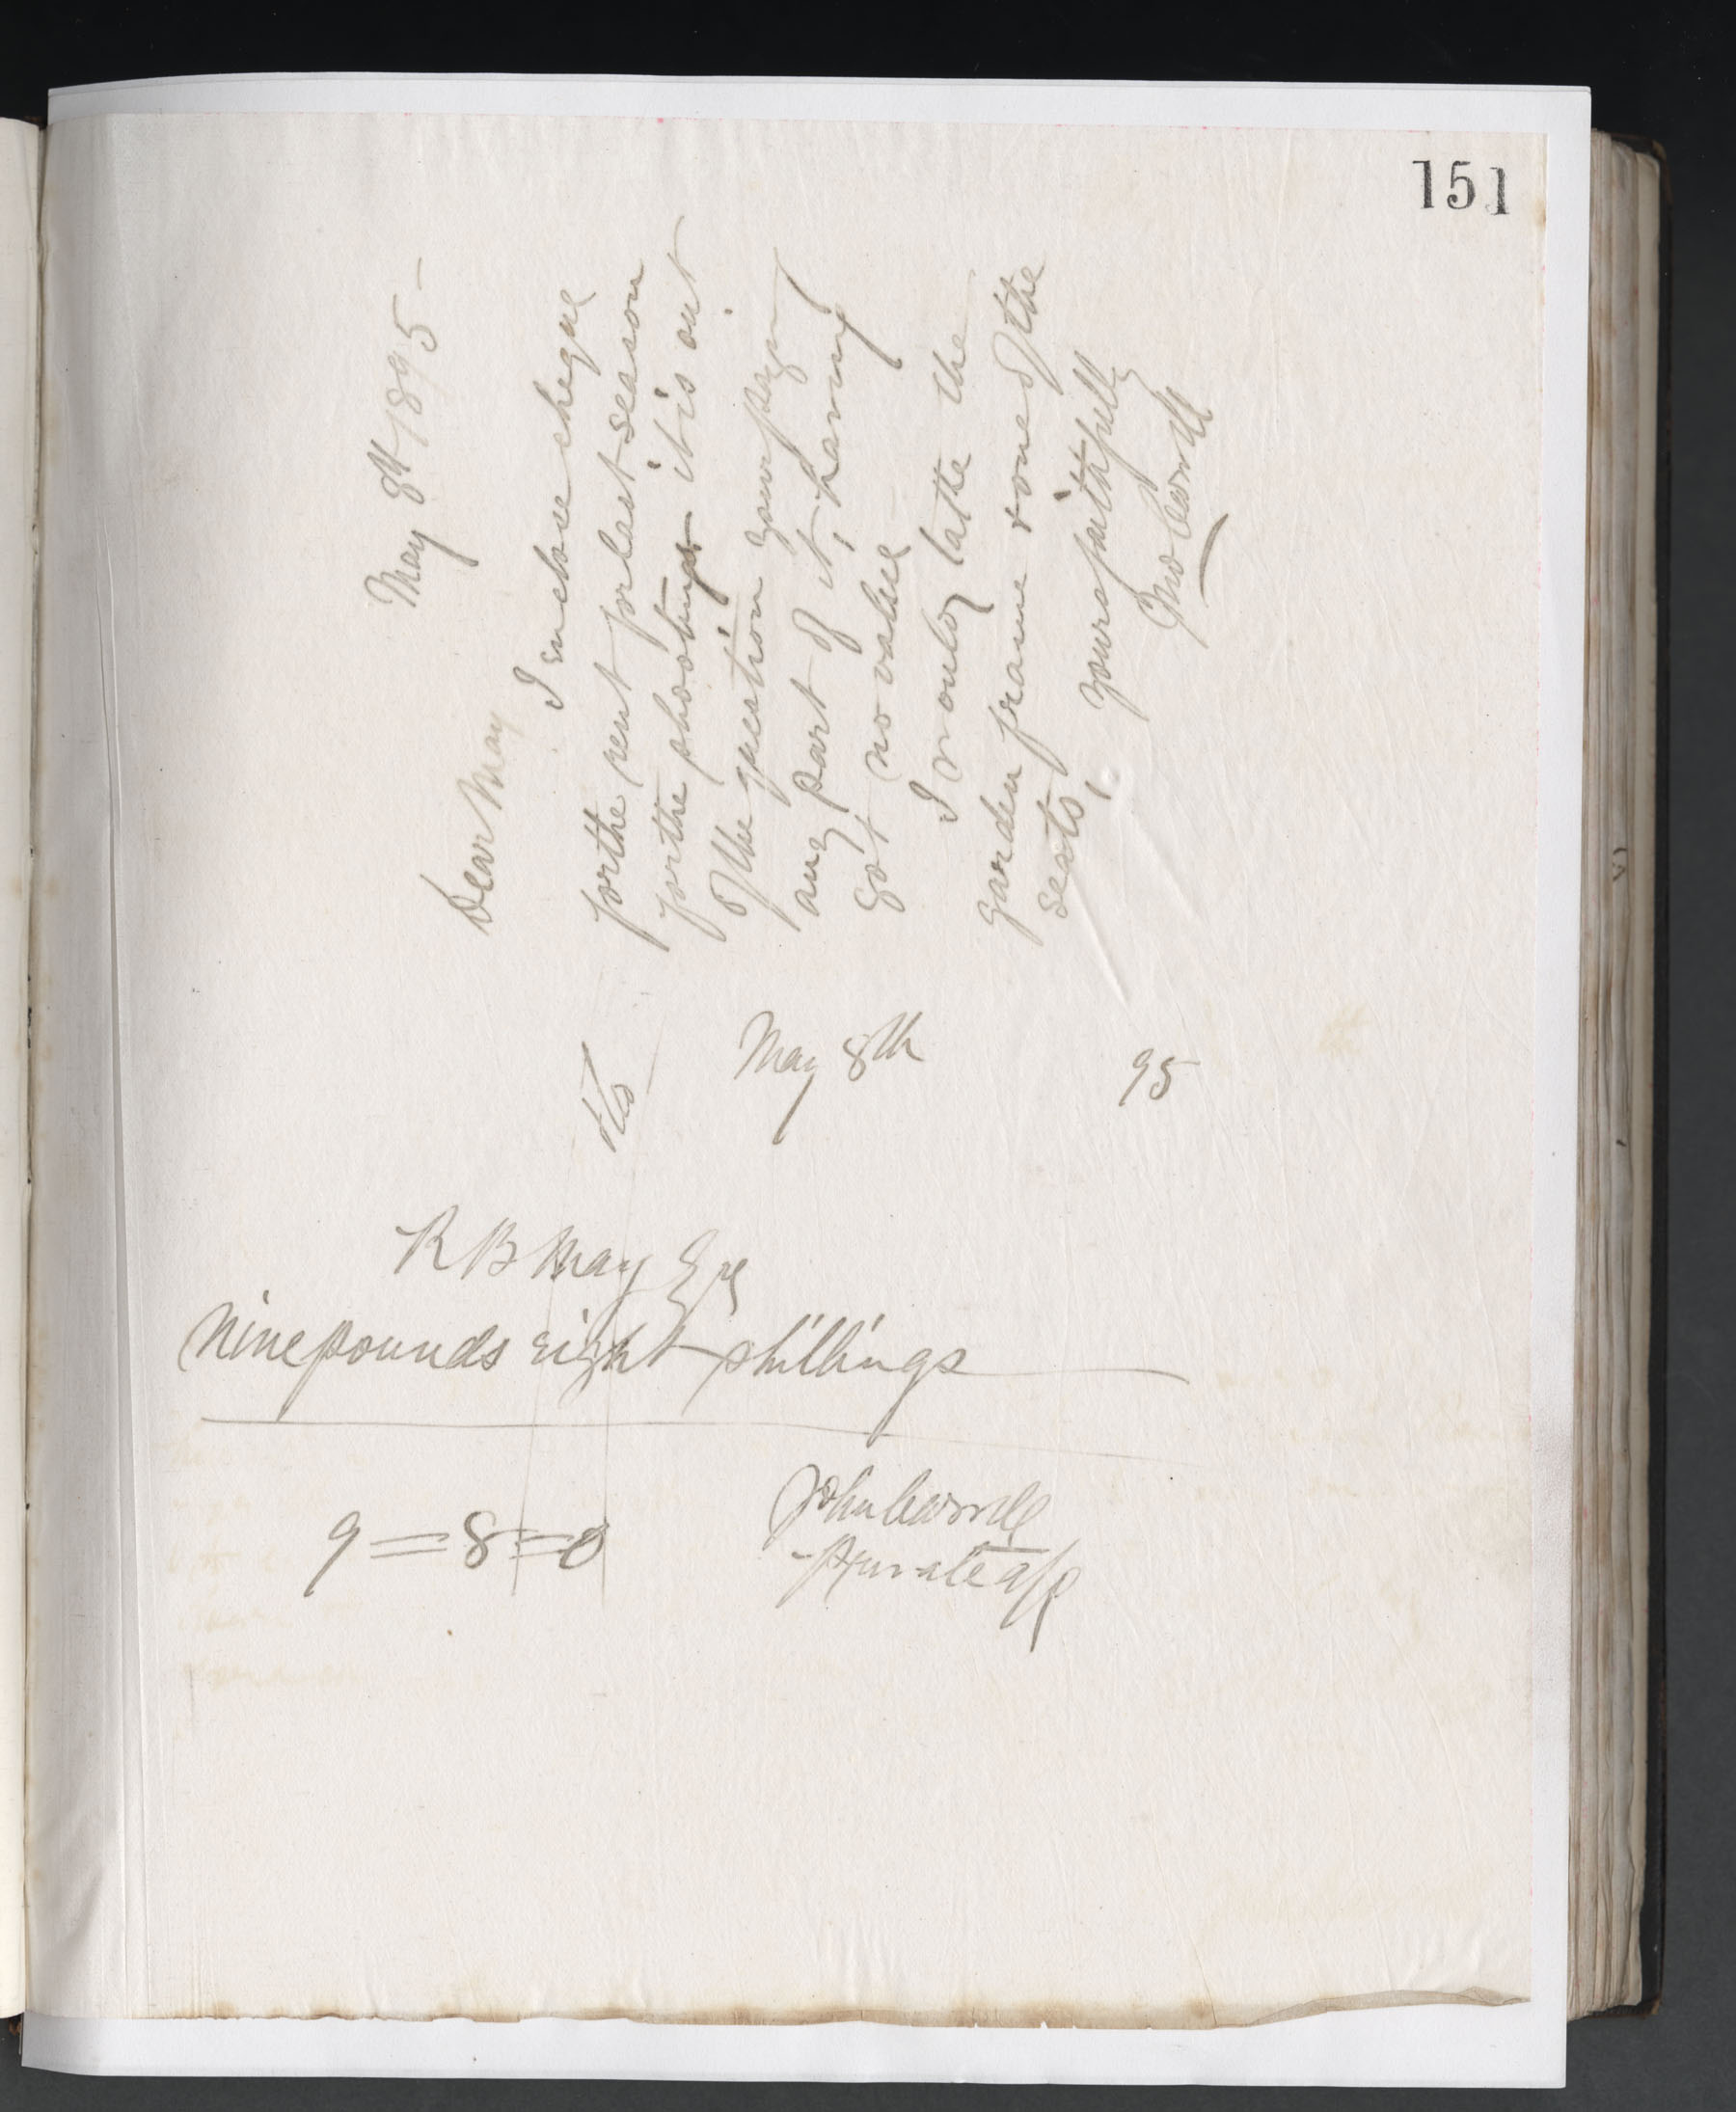 151
May 8th 1895 -
Dear May
I enclose cheque
for the rent for last season
for the shooting - it is out
of the question your paying
any part of it, having
got no value -
I would take the
garden frame & one of the
seats,
yours faithfully
Jno
May 8th 95
R B May Esq
Nine pounds eight shillings
9=8=0
John
private a/c